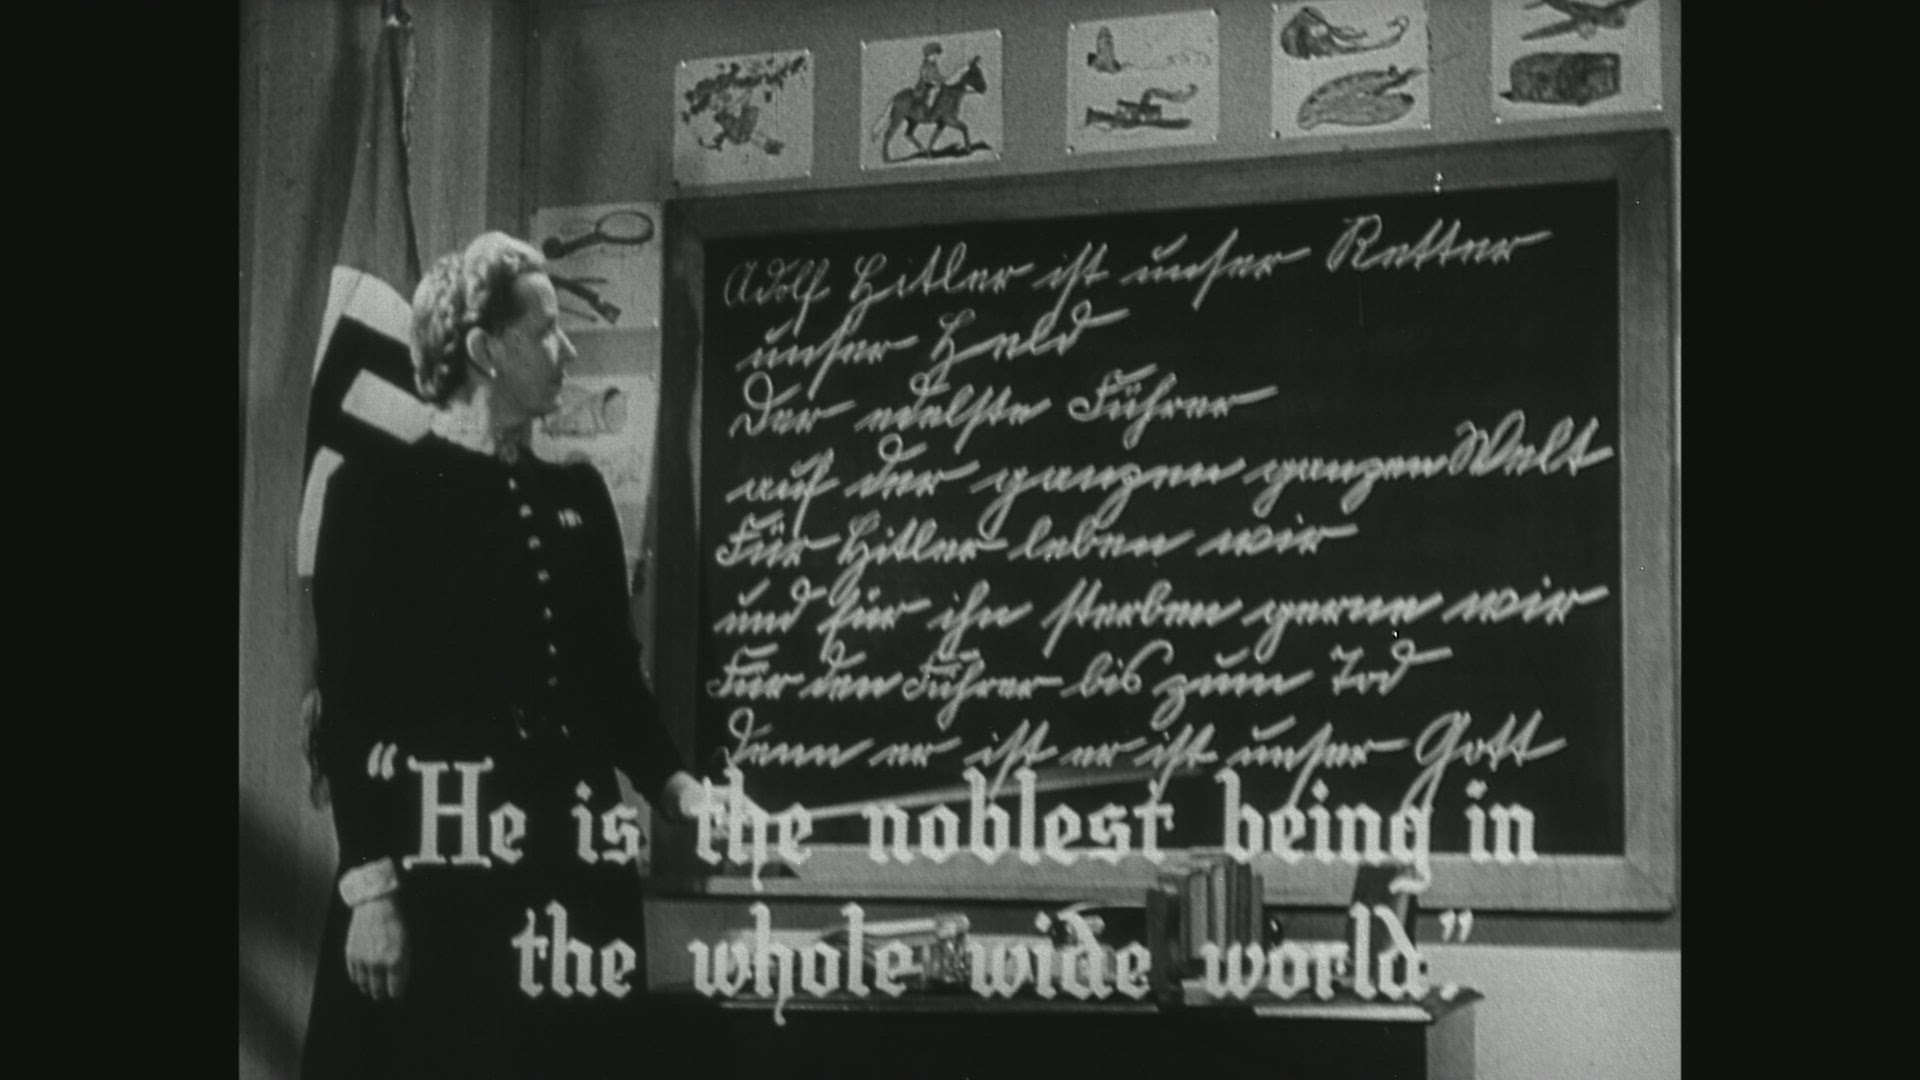 Adolf Hitler ist unser Retter
unser Held
Der edelste Führer
auf der ganzen ganzen Welt
Für Hitler leben wir
und für ihn sterben gerne wir
Für den Führer bis zum Tod
Denn er ist er ist unser Gott
“He is the noblest being in
the whole wide world.”